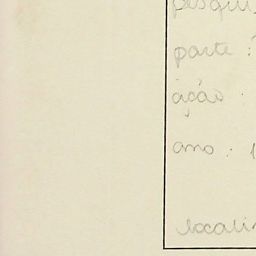 pesqui
parte :
ação :
ano : 1
locali